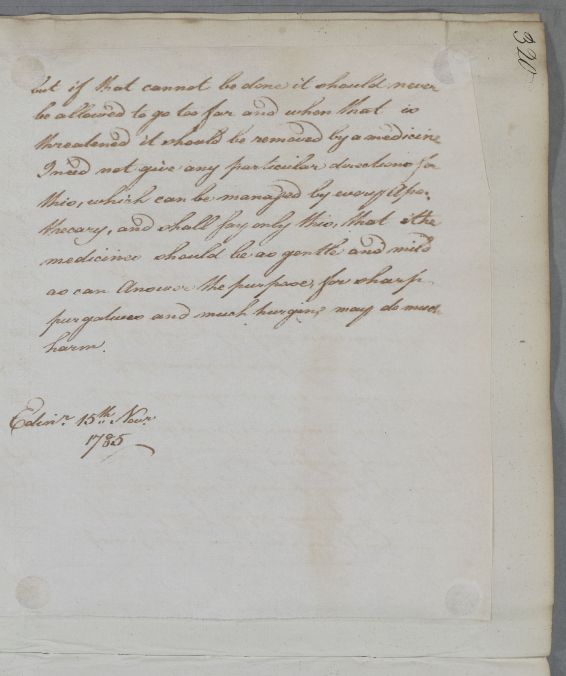 320
but if that cannot be done it should never
be allowed to go too far and when that is
threatened it should be removed by a medicine
I need not give any particular directions for
this, which can be managed by every Apo,
thecary, and shall say only this, that the
medicines should be as gentle and mild
as can Answer the purpose, for sharp
purgatives and much purging may do much
harm.
Edinr. 15th. Novr.
1785